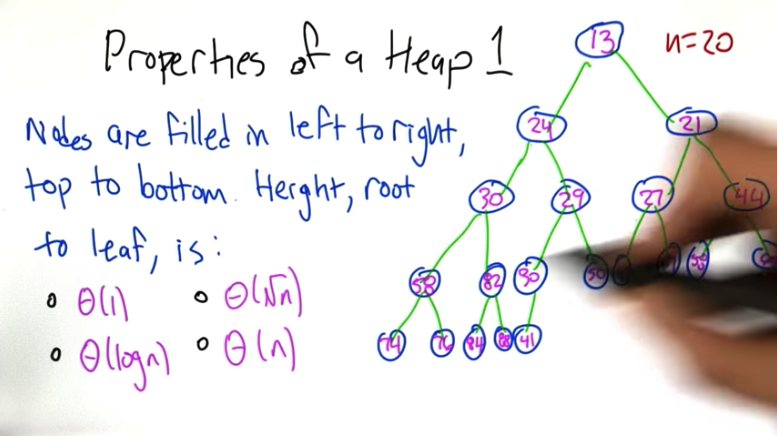 Properties of a Heap 1
n=20
Nodes are filled in left to right,
top to bottom. Height, root
to leaf, is:
Θ(1)
Θ(√n)
Θ(logn)
Θ(n)
13
24 21
30 29 27 44
58 82 50
74 76 84 88 41